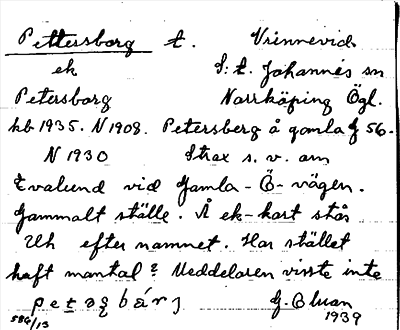 Pettersborg t. Vrinnevid
ek S:t. Johannes sn
Petersborg Norrköping Ögl.
hb 1935. N 1908. Petersberg å gamla G 56.
N 1930 Strax s. v. om
Evalund vid Gamla-Ö-vägen.
Gammalt ställe. Å ek-kart står
Uh efter namnet. Har stället
haft mantal? Meddelaren visste inte
1939